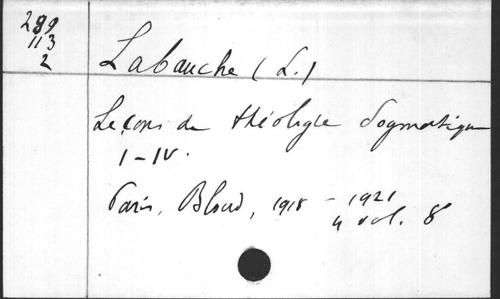 299
113
2
Labauche (L.)
Leçons de théologie dogmatique
I-IV.
Paris, Bloud, 1918 - 1921
4 vol. 8°